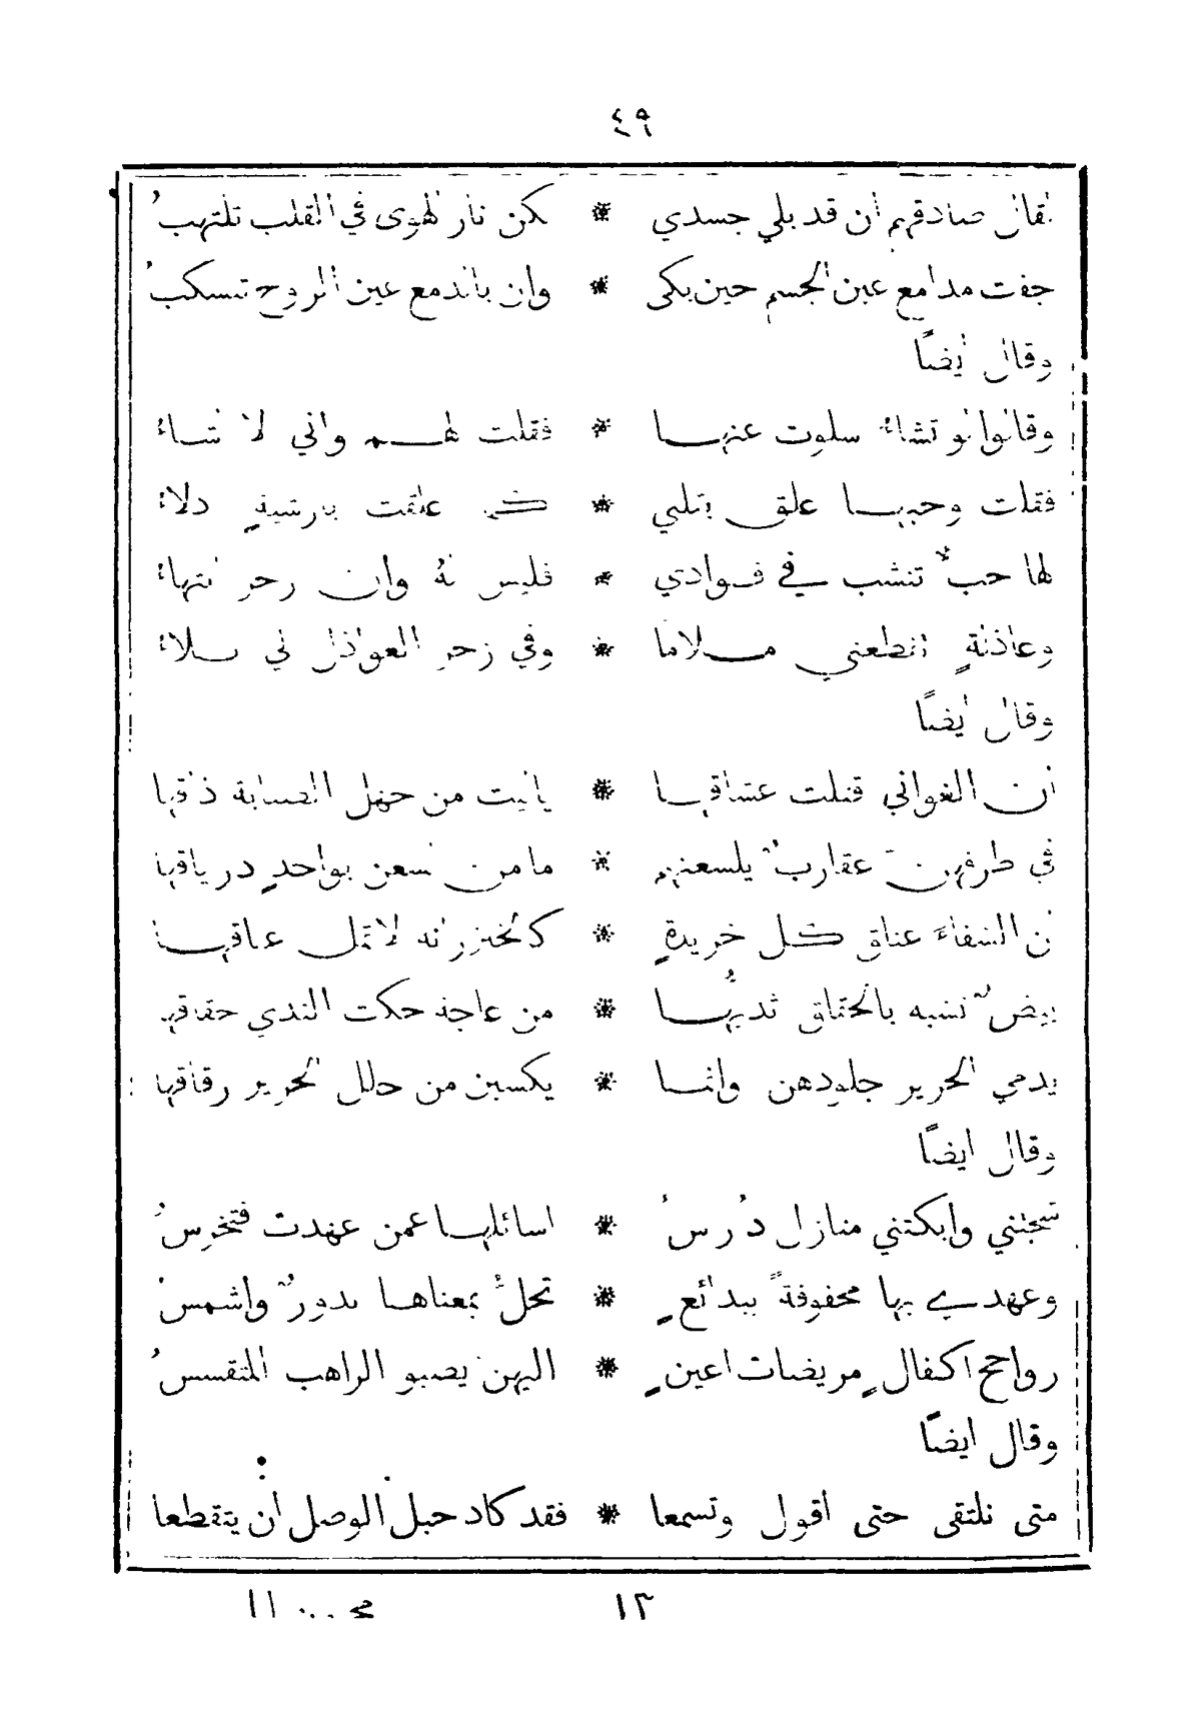 ٤٩
فقال صادقهم أن قد بلي جسدي * لكن نار الهوى في القلب تلتهبُ
جفت مدامع عين الجسم حين بكى * وان بالدمع عين الروح تنسكبُ
وقال أيضاً
وقالوا لو تشاء سلوت عنهـا * فقلت لهـم واني لا أشـاء
فقلت وحبهـا علق بقلبي * كمـا علقت بارشيةٍ دلاء
لها حبٌ تنشب في فـوادي * فليس له وان زجر انتهاء
وعاذلةٍ تقطعني مـلاما * وفي زجر العواذل لي بـلاء
وقال ايضاً
ان الغواني قتلت عشاقهـا * ياليت من جهل الصبابة ذاقها
في طرفهن عقاربٌ يلسعنهم * ما من لسعن بواحدٍ درياقها
ان الشفاء عناق كل خريدةٍ * كالخيزرانة لا تمل عناقهـا
بيضٌ تشبه بالحقاق ثديُّهـا * من عاجة حكت الثدي حقاقها
يدمي الحرير جلودهن وانمـا * يكسين من حلل الحرير رقاقها
وقال ايضاً
شجتني وابكتني منازل دُرسُ * اسائلهـا عمن عهدت فتخرسُ
وعهدي بها محفوفةً ببدائعٍ * تحلُّ بمعناهـا بدورٌ واشمسُ
رواجح اكفالٍ مريضات اعينٍ * اليهن يصبو الراهب المتقسسُ
وقال ايضاً
متى نلتقى حتى أقول وتسمعا * فقد كاد حبل الوصل أن يتقطعا
١٣